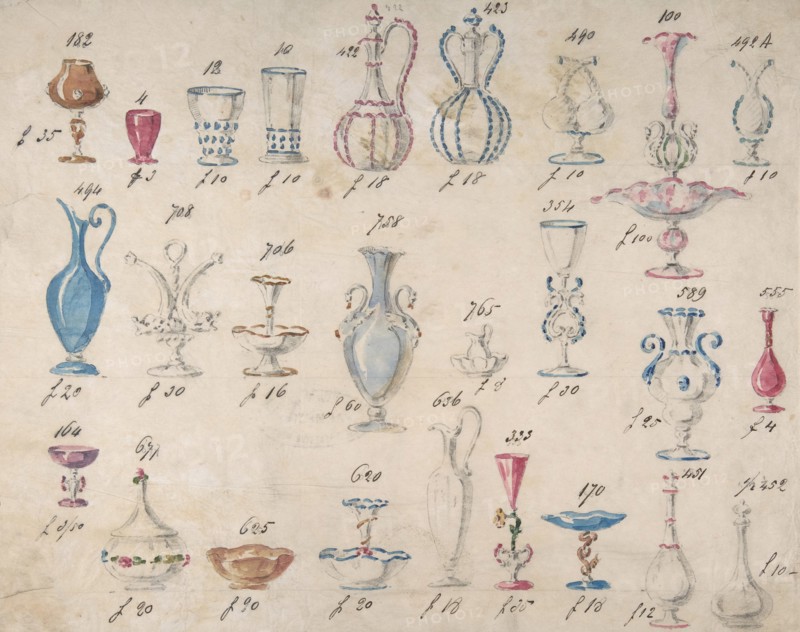 182
4
12
10
422
423
490
100
492A
£ 35
£ 3
£ 10
£ 10
£ 18
£ 18
£ 10
£ 100
£ 10
494
708
706
758
765
354
589
555
£ 20
£ 30
£ 16
£ 60
£ 8
£ 30
£ 25
£ 4
164
671
625
620
636
333
170
451
1/2 452
£ 3/10
£ 20
£ 20
£ 20
£ 18
£ 35
£ 18
£ 12
£ 10-